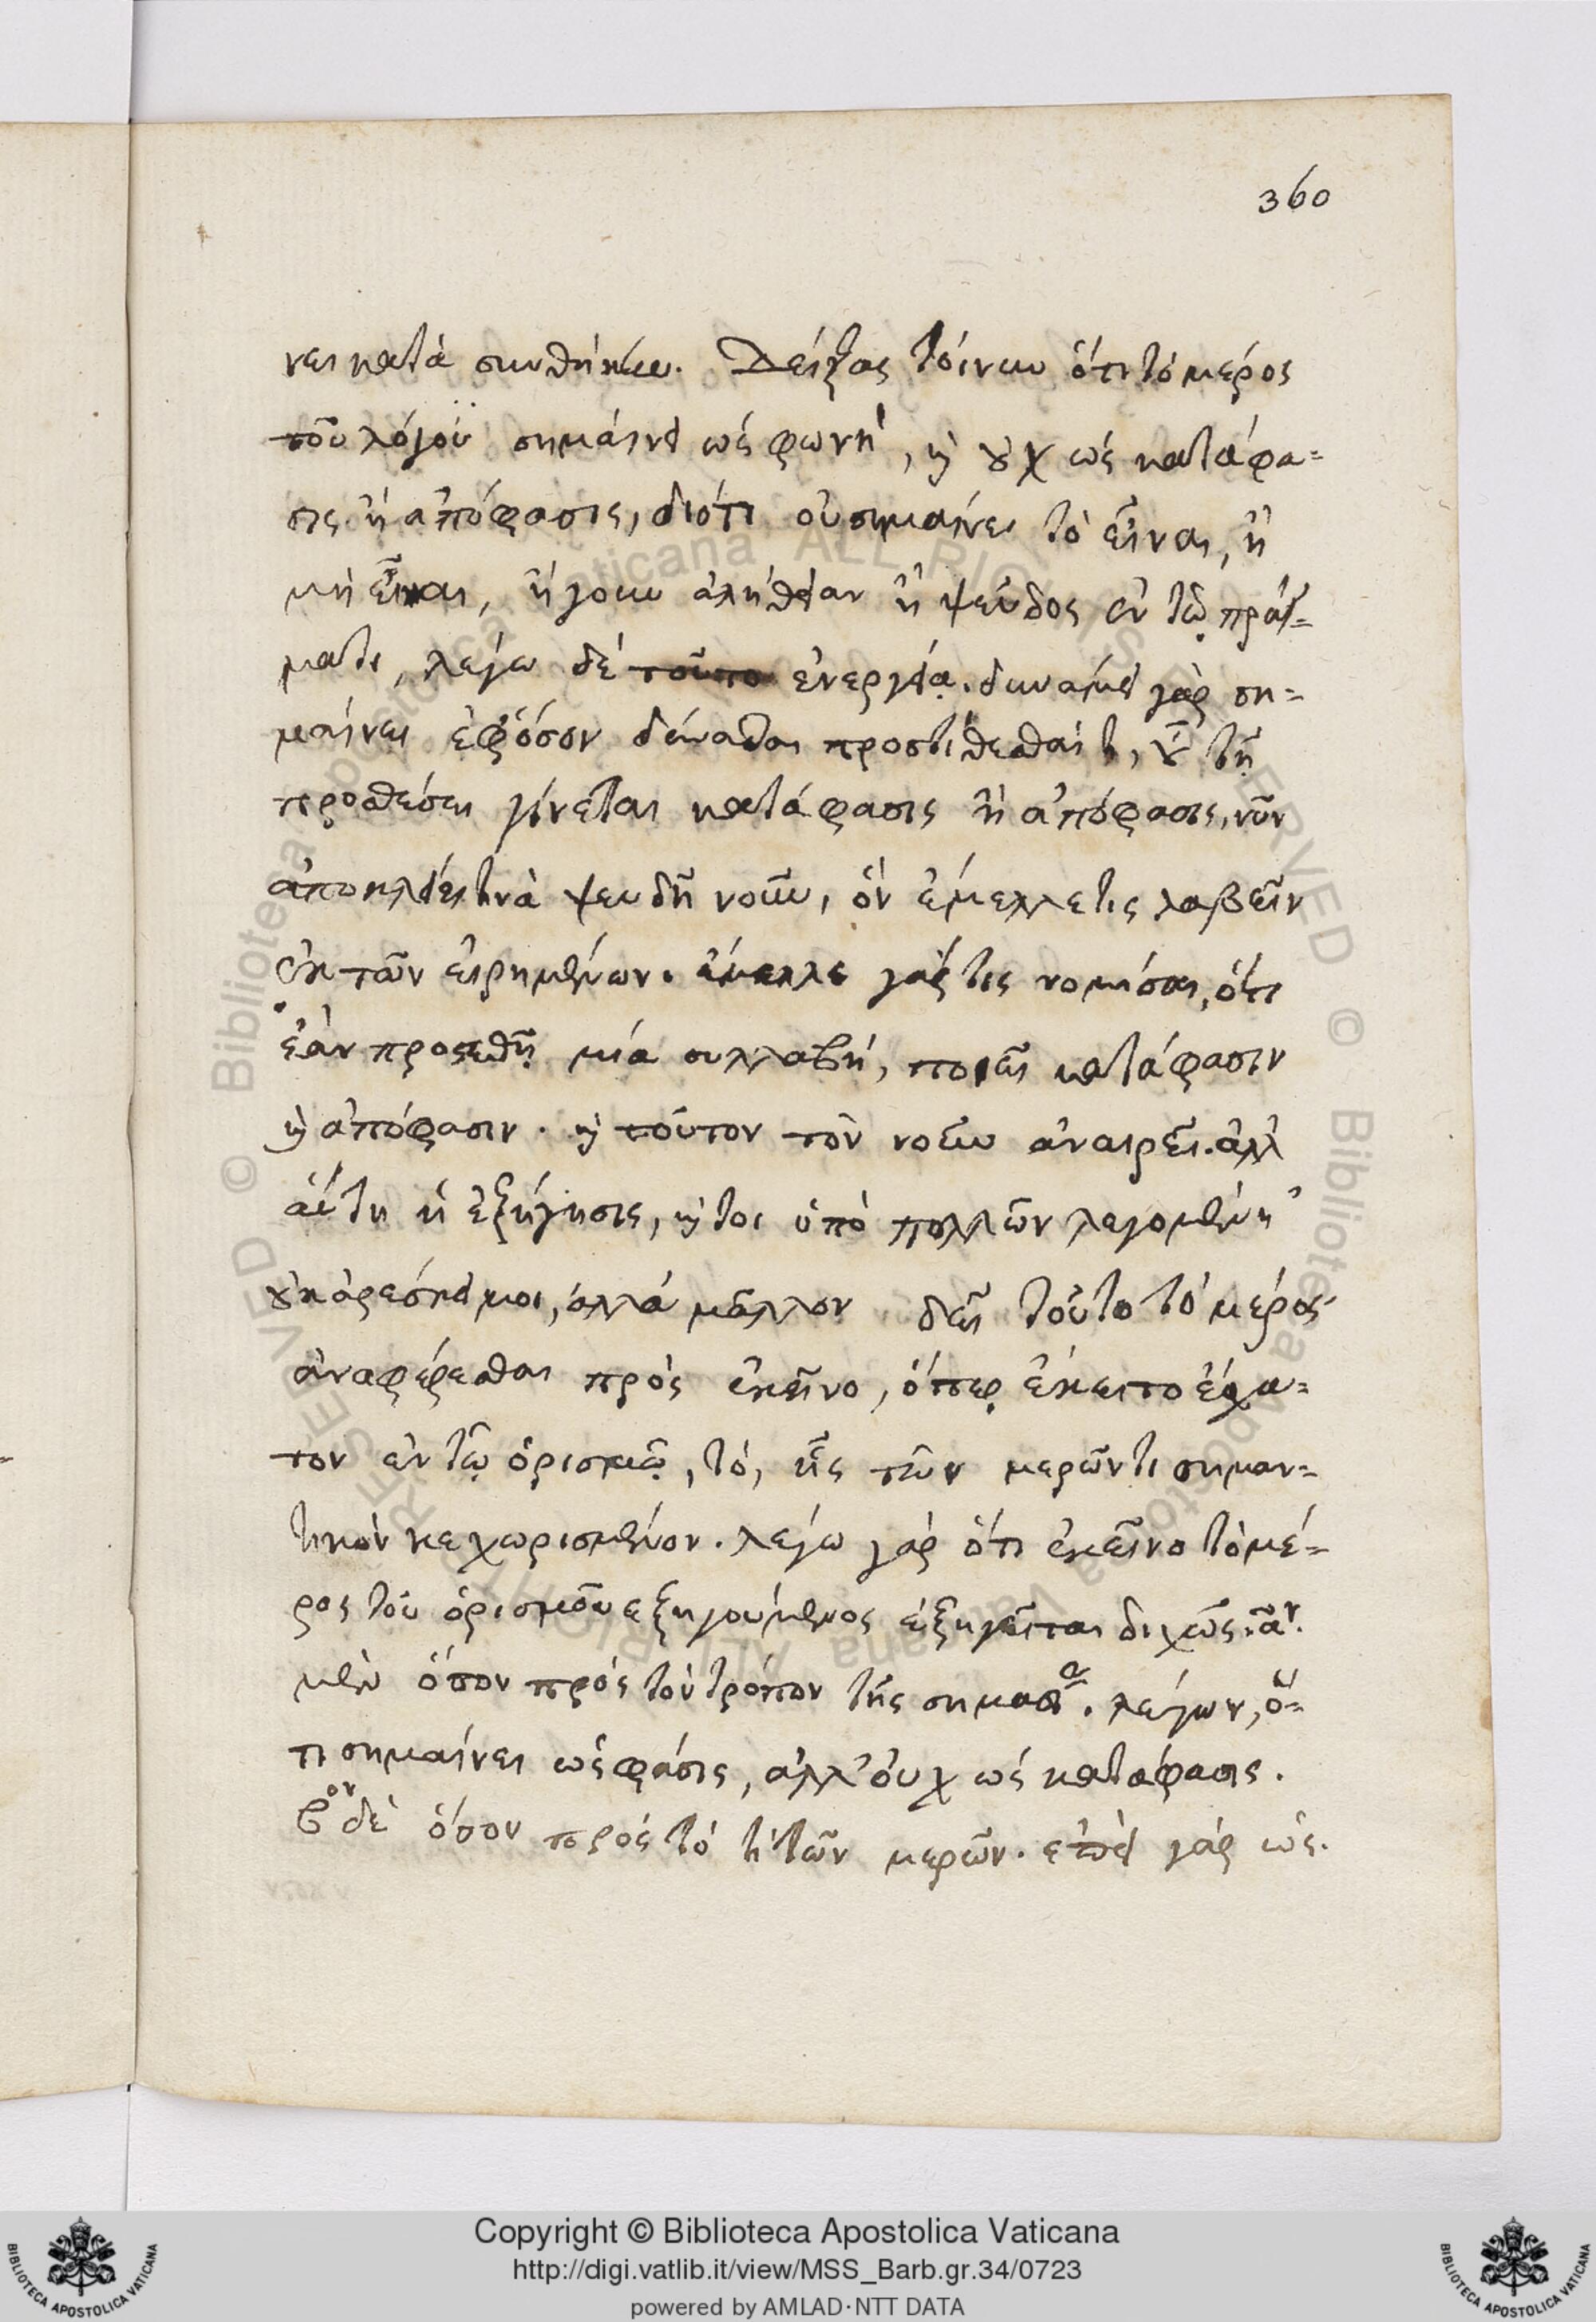 360
νει κατὰ συνθήκην. Δείξας τοίνυν ὅτι τὸ μέρος
τοῦ λόγου σημαίνει ὡς φωνή, κὶ οὐχ ὡς κατάφα=
σις ἢ ἀπόφασις, διότι οὐ σημαίνει τὸ εἶναι, ἢ
μὴ εἶναι, ἤγουν ἀλήθειαν ἢ ψεῦδος ἐν τῷ πράγ=
ματι, λέγω δὲ ἐνεργείᾳ. δυνάμει γὰρ ση=
μαίνει ἐφ' ὅσον δύναται προστίθεσθαί τι, τῇ
προσθέσει γίνεται κατάφασις ἢ ἀπόφασις, νῦν
ἀποκλείει τινὰ ψευδῆ νοῦν, ὃν ἔμελλέ τις λαβεῖν
ἐκ τῶν εἰρημένων. ἔμελλε γάρ τις νομίσαι, ὅτι
ἐὰν προστεθῇ μία συλλαβή, ποιεῖ κατάφασιν
κὶ ἀπόφασιν. κὶ τοῦτον τὸν νοῦν ἀναιρεῖ. ἀλλ
αὕτη ἡ ἐξήγησις, ἤτοι ὑπὸ πολλῶν λεγομένη
οὐκ ἀρέσκει μοι, ἀλλὰ μᾶλλον δεῖ τοῦτο τὸ μέρος
ἀναφέρεσθαι πρὸς ἐκεῖνο, ὅπερ ἔκειτο ἔσχα=
τον ἐν τῷ ὁρισμῷ, τὸ, ἧς τῶν μερῶν τι σημαν=
τικὸν κεχωρισμένον. λέγω γὰρ ὅτι ἐκεῖνο τὸ μέ=
ρος τοῦ ὁρισμοῦ ἐξηγούμενος ἐξηγεῖται διχῶς. αον
μὲν ὅσον πρὸς τὸν τρόπον τῆς σημασίας. λέγων, ὅ=
τι σημαίνει ὡς φάσις, ἀλλ' οὐχ ὡς κατάφασις.
βον δὲ ὅσον πρὸς τὸ τὶ τῶν μερῶν. ἐπεὶ γὰρ ὡς.
Copyright © Biblioteca Apostolica Vaticana
http://digi.vatlib.it/view/MSS_Barb.gr.34/0723
powered by AMLAD·NTT DATA